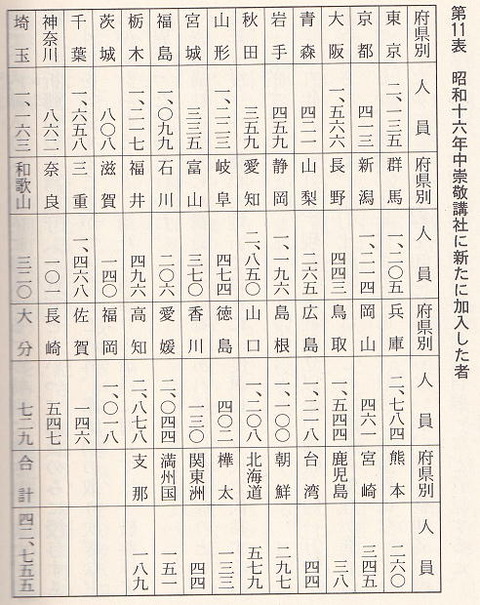 第11表 昭和十六年中崇敬講社に新たに加入した者
府県別 人員 府県別 人員 府県別 人員 府県別 人員
東京 二、一三五 群馬 一、二〇五 兵庫 二、七八四 熊本 二六〇
京都 四一三 新潟 一、二一四 岡山 四六一 宮崎 三四五
大阪 一、五六六 長野 四四三 鳥取 一、五四四 鹿児島 三八
青森 四二一 山梨 二六五 広島 一、二一八 台湾 四四
岩手 四五九 静岡 一、一九六 島根 一、一〇〇 朝鮮 二九七
秋田 三五九 愛知 二、八五〇 山口 一、二〇八 北海道 五七九
山形 一、二二三 岐阜 四七四 徳島 四〇二 樺太 一三三
宮城 三三五 富山 三七〇 香川 一三〇 関東洲 四四
福島 一、〇九九 石川 二〇六 愛媛 二、〇四四 満州国 一五一
栃木 一、二一七 福井 四九六 高知 二、八七八 支那 一八九
茨城 八〇八 滋賀 一四〇 福岡 一、〇一八
千葉 一、六五八 三重 一、四六八 佐賀 一四六
神奈川 八六二 奈良 一〇一 長崎 五四七
埼玉 一、一六三 和歌山 三二〇 大分 七二九 合計 四二、七五五